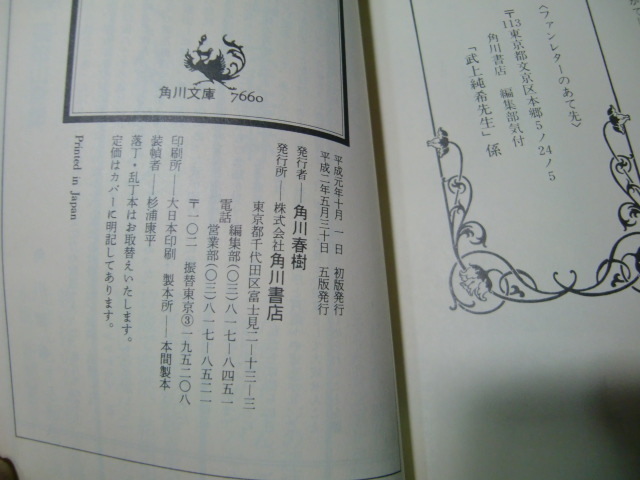 〈ファンレターのあて先〉
〒113東京都文京区本郷5ノ24ノ5
角川書店 編集部気付
「武上純希先生」係
角川文庫 7660
平成元年十月一日 初版発行
平成二年五月三十日 五版発行
発行者――角川春樹
発行所――株式会社角川書店
東京都千代田区富士見二―十三―三
電話 編集部(〇三)八一七―八四五一
営業部(〇三)八一七―八五二一
〒一〇二 振替東京③一九五二〇八
印刷所――大日本印刷 製本所――本間製本
装幀者――杉浦康平
落丁・乱丁本はお取替えいたします。
定価はカバーに明記してあります。
Printed in Japan